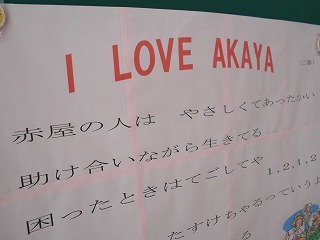 I LOVE AKAYA
(二番)
赤屋の人は やさしくてあったかい
助け合いながら生きてる
困ったときはてごしてや 1,2,1,2
たすけちゃるっていうよ
る